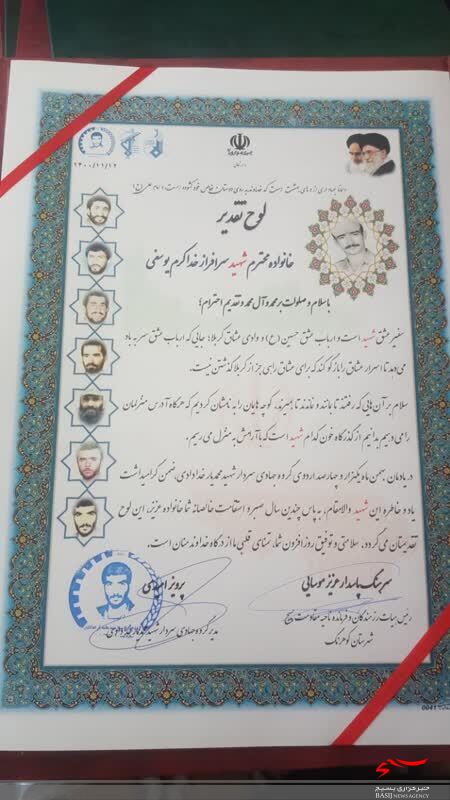 ۱۴۰۰/۱۱/۱۲
لوح تقدیر
خانواده محترم شهید سرافراز خدا کرم یوسفی
با سلام و صلوات بر محمد و آل محمد و تقدیم احترام؛
سفیر عشق شهید است و ارباب عشق حسین (ع) و وادی عشاق کربلا؛ جایی که ارباب عشق سر به باد
می‌دهد تا اسرار عشاق را بازگو کند که برای عشاق راهی جز از کربلا گذشتن نیست.
سلام بر آن‌هایی که رفتند تا بمانند و نماندند تا بمیرند، کوچه‌هایمان را به نامشان کردیم که هرگاه آدرس منزلمان
را می‌دهیم بدانیم از گذرگاه خون کدام شهید است که با آرامش به منزل می‌رسیم.
در یادمان بهمن ماه یکهزار و چهارصد اردوی گروه جهادی سردار شهید محمدیار خدادادی، ضمن گرامیداشت
یاد و خاطره این شهید والامقام، به پاس چندین سال صبر و استقامت خالصانه شما خانواده عزیز، این لوح
تقدیمتان می‌گردد. سلامتی و توفیق روزافزون شما، تمنای قلبی ما از درگاه خداوند منان است.
سرهنگ پاسدار عزیز موسایی
رئیس هیات رزمندگان و فرمانده ناحیه مقاومت بسیج
شهرستان کوهرنگ
پرویز
مدیر گروه جهادی سردار شهید
خبرگزاری بسیج
BASIJ NEWS AGENCY